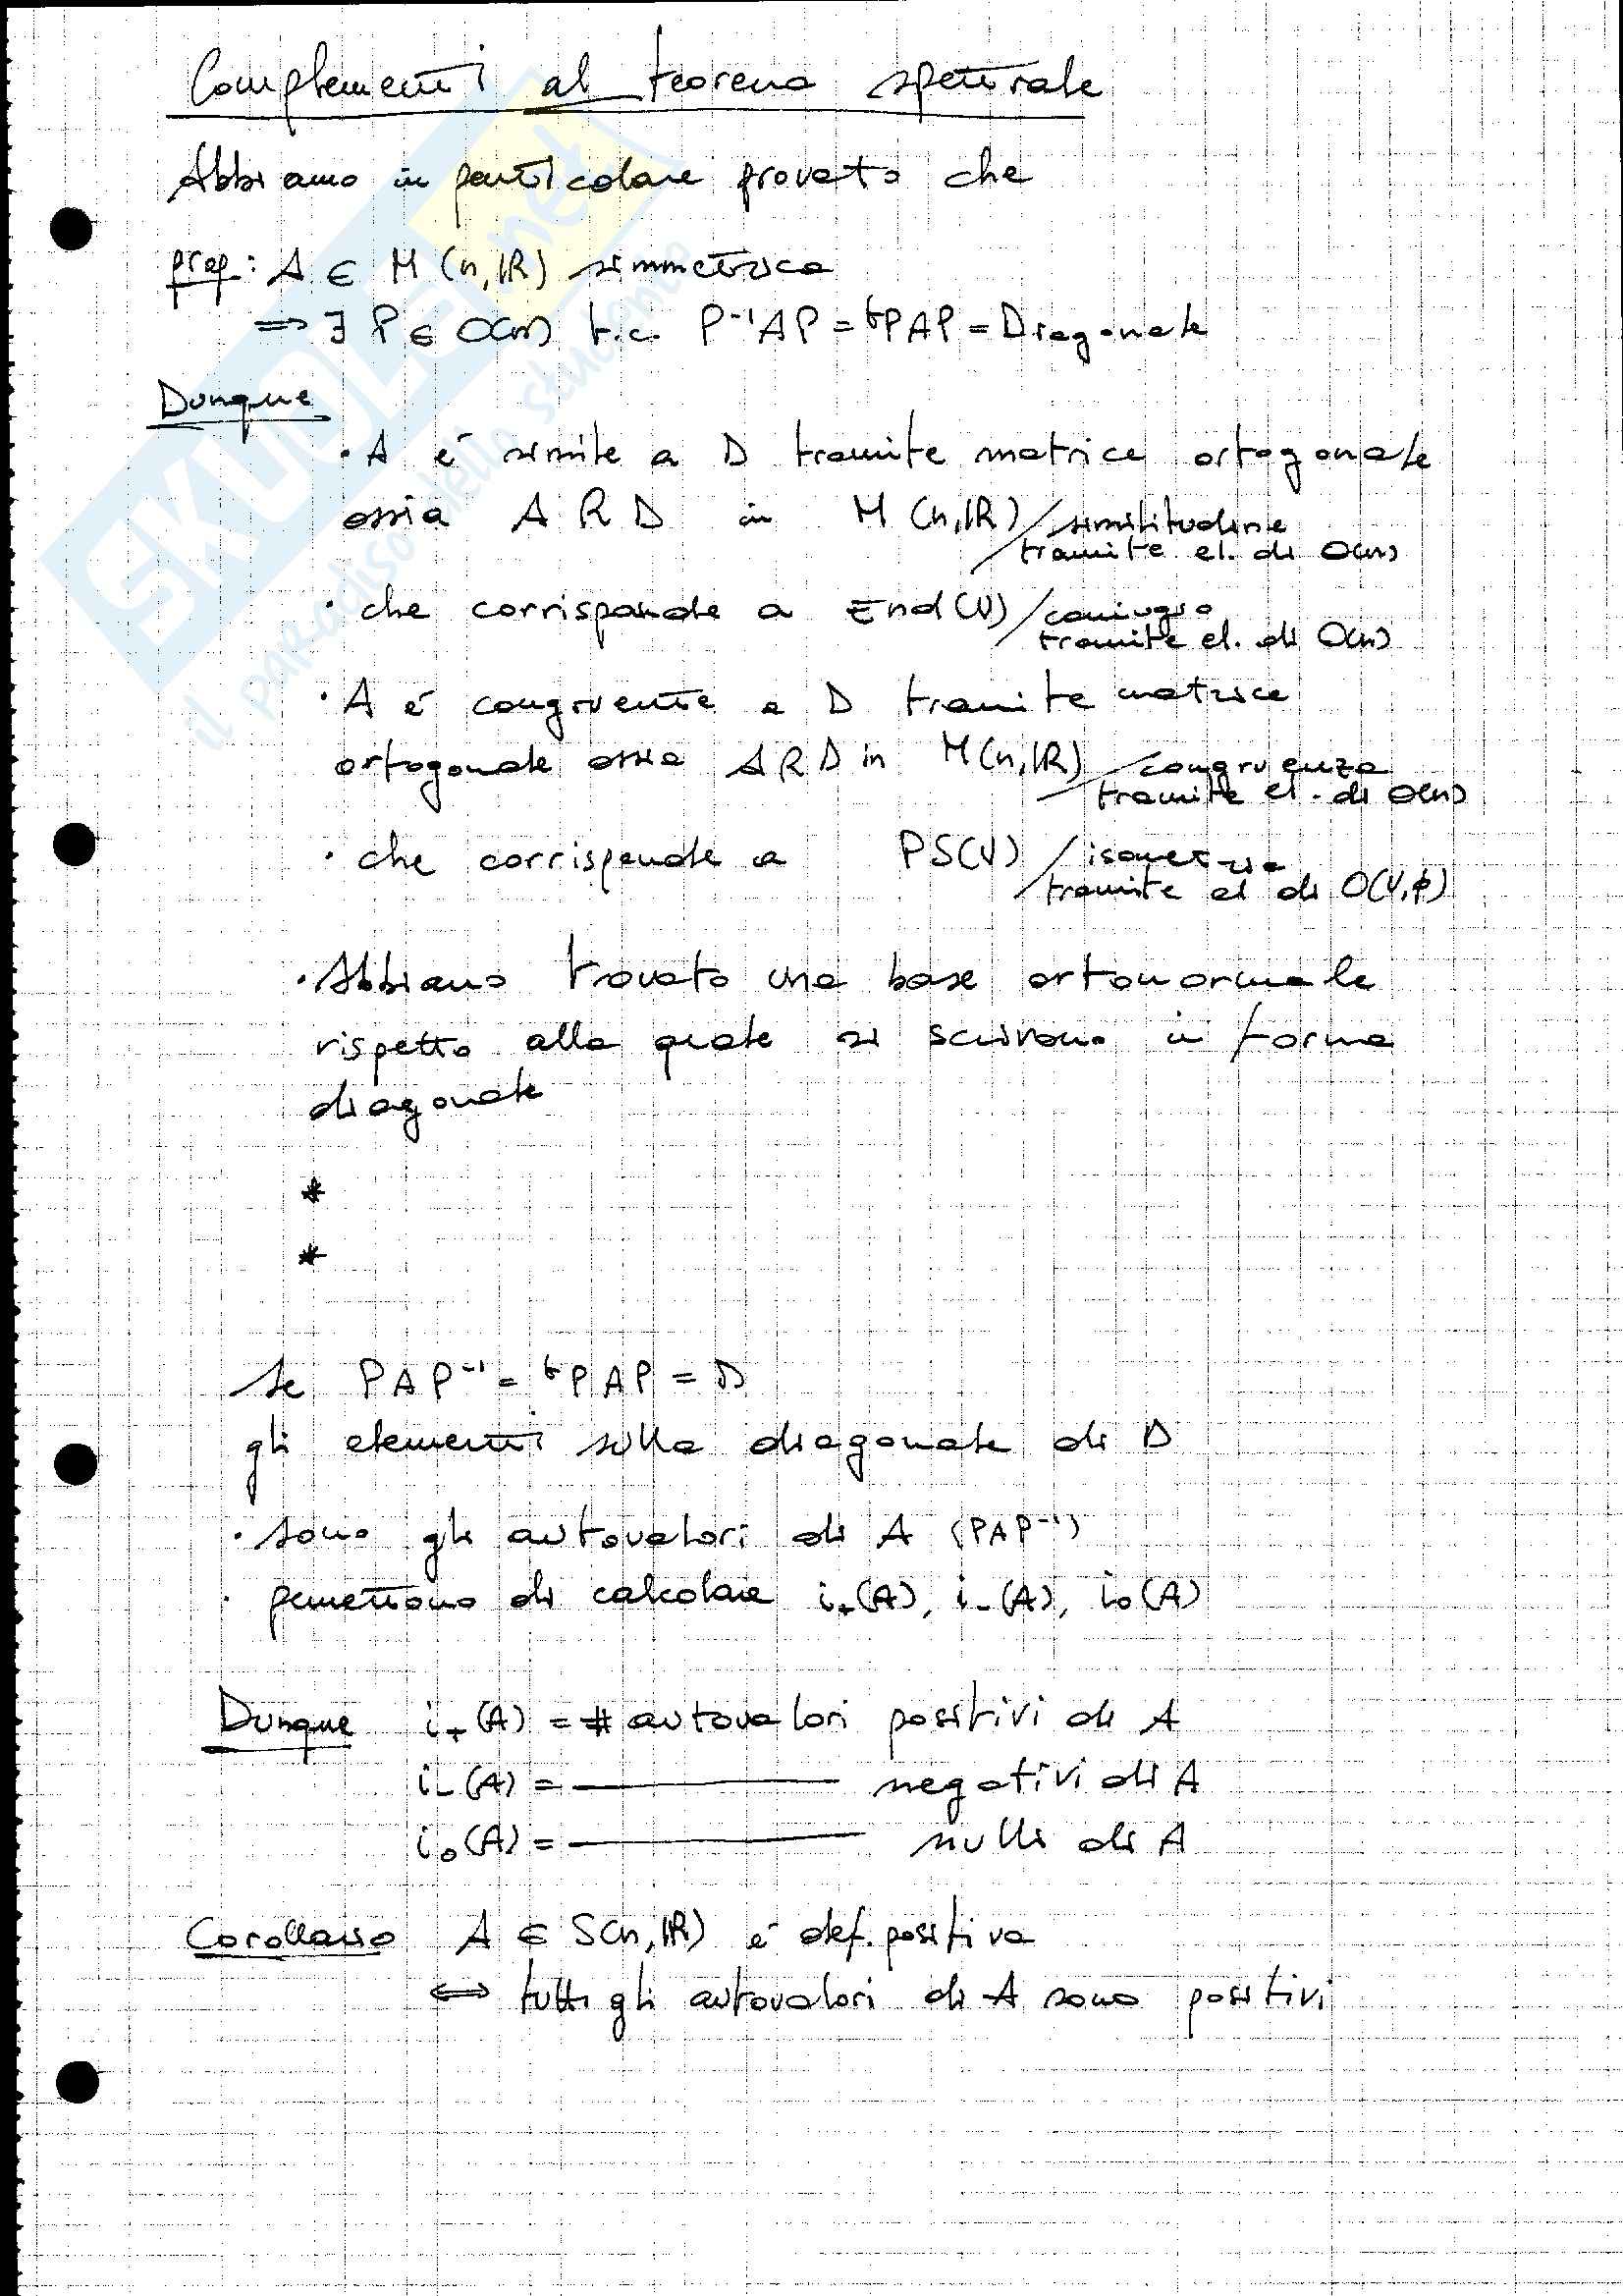 Complementi al teorema spettrale
Abbiamo in particolare provato che
prop: A ∈ M(n,ℝ) simmetrica
⟹ ∃ P ∈ O(n) t.c. P⁻¹AP = ᵗPAP = Diagonale
Dunque
· A é simile a D tramite matrice ortogonale
ossia A R D in M(n,ℝ)/similitudine
tramite el. di O(n)
· che corrisponde a End(V)/coniugio
tramite el. di O(n)
· A é congruente a D tramite matrice
ortogonale ossia A R D in M(n,ℝ)/congruenza
tramite el. di O(n)
· che corrisponde a PS(V)/isometria
tramite el di O(V,ϕ)
· Abbiamo trovato una base ortonormale
rispetto alla quale si scrivono in forma
diagonale
*
*
Se PAP⁻¹ = ᵗPAP = D
gli elementi sulla diagonale di D
· sono gli autovalori di A (PAP⁻¹)
· permettono di calcolare i₊(A), i₋(A), i₀(A)
Dunque i₊(A) = # autovalori positivi di A
i₋(A) = ——— negativi di A
i₀(A) = ——— nulli di A
Corollario A ∈ S(n,ℝ) é def. positiva
⟺ tutti gli autovalori di A sono positivi
SKUOLA.net
il PARAdiso dello studente